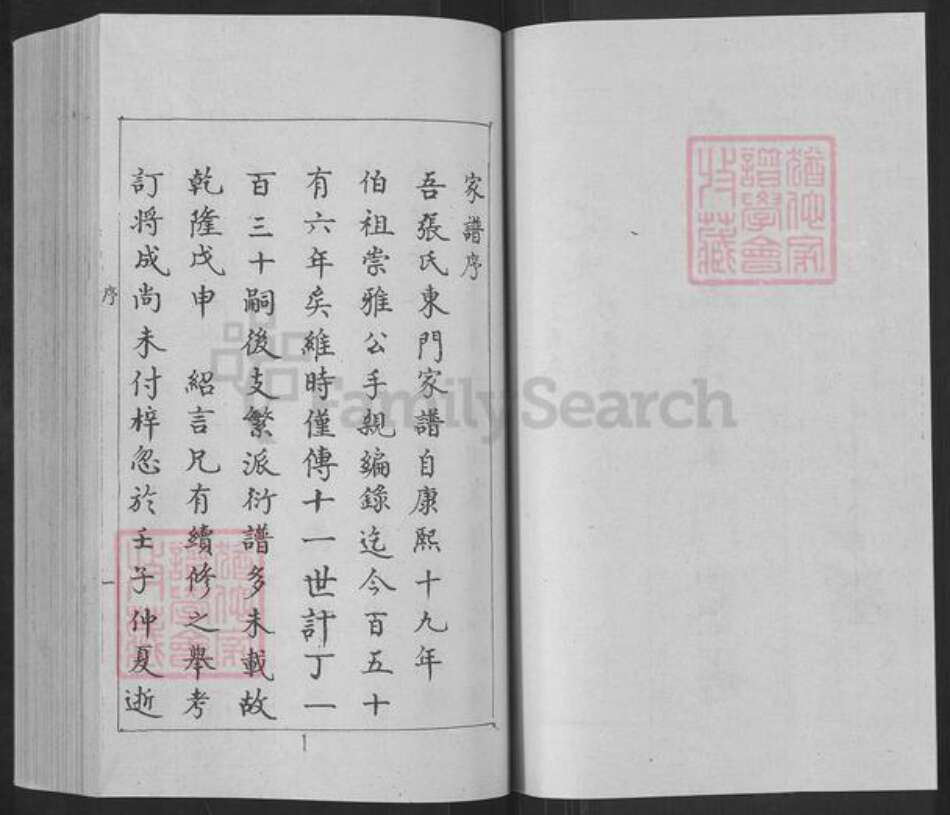 家譜序
吾張氏東門家譜自康熙十九年
伯祖崇雅公手親編錄迄今百五十
有六年矣維時僅傳十一世計丁一
百三十嗣後支繁派衍譜多未載故
乾隆戊申 紹言兄有續修之舉考
訂將成尚未付梓忽於壬子仲夏逝
序
一
1
FamilySearch
譜學會
收藏
譜學會
收藏